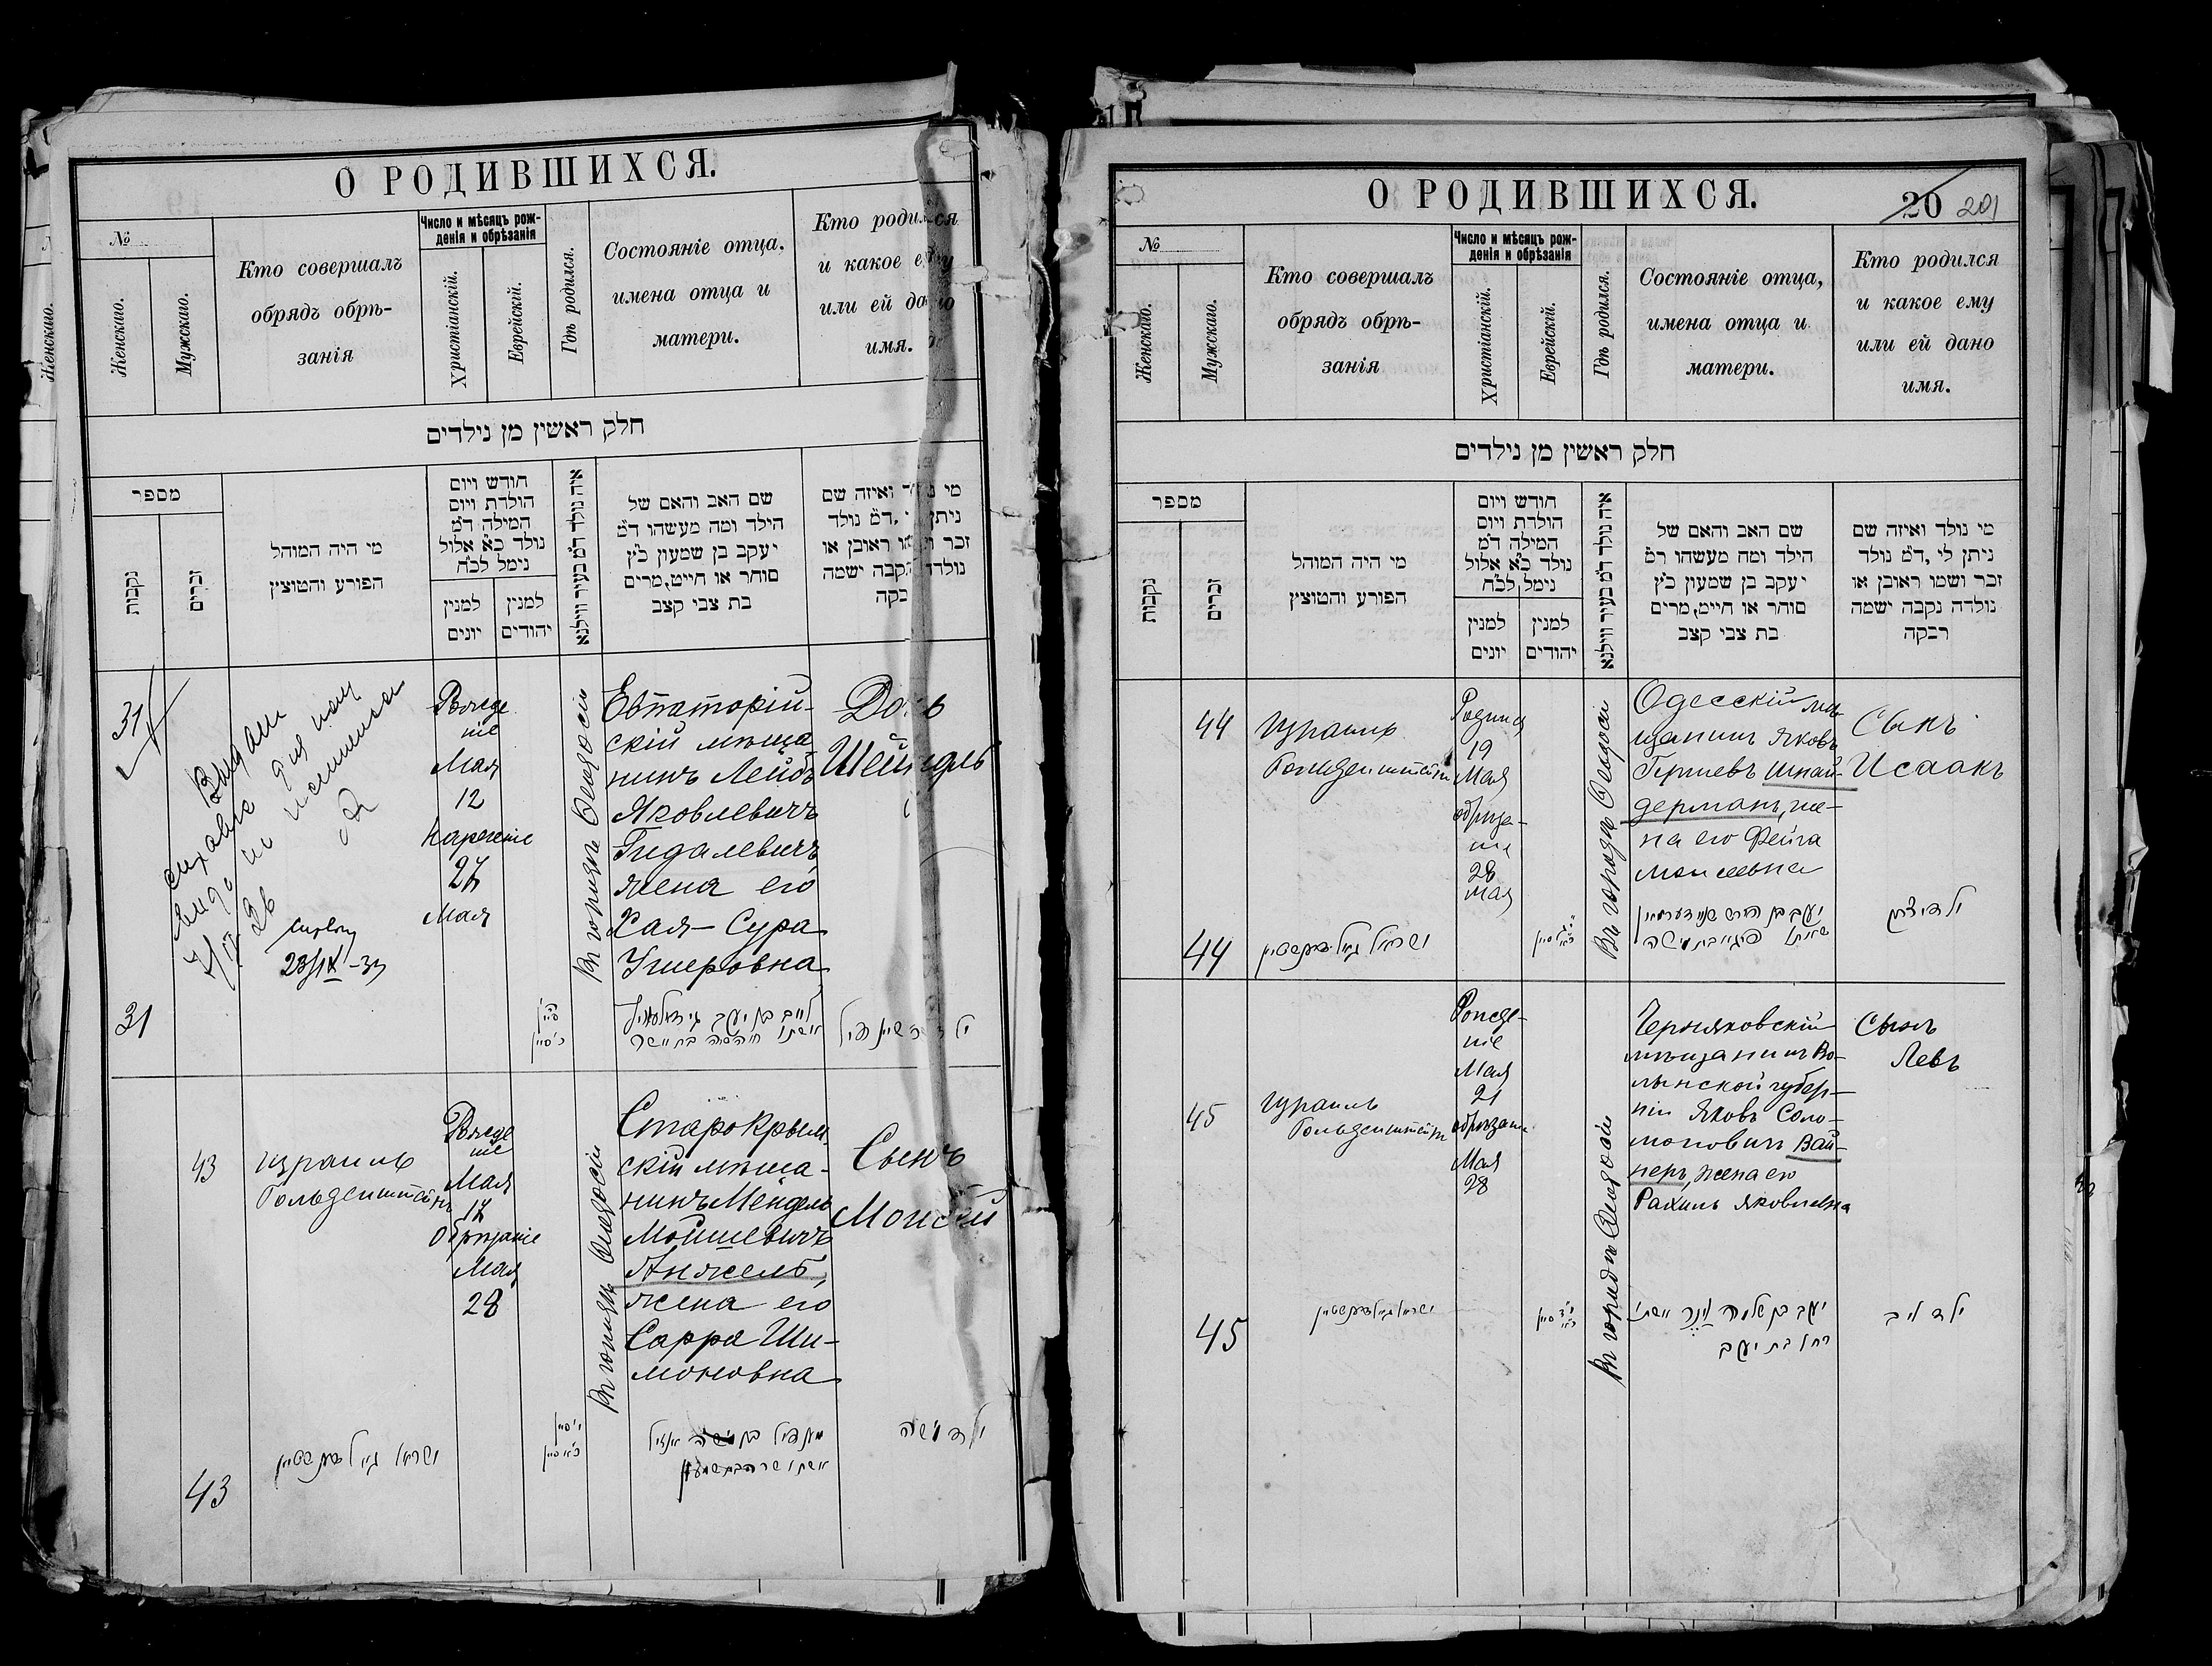 О РОДИВШИХСЯ.
№
Женскаго.
Мужскаго.
Кто совершалъ
обрядъ обрѣ-
занія
Число и мѣсяцъ рож-
денія и обрѣзанія
Христіанскій.
Еврейскій.
Гдѣ родился.
Состояніе отца,
имена отца и
матери.
Кто родился
и какое ему
или ей дано
имя.
חלק ראשין מן נילדים
מספר
נקבות
זכרים
מי היה המוהל
הפורע והמוצץ
חודש ויום
הולדת ויום
המילה ד״מ
נולד כ״א אלול
נימל לכ״ח
למנין
יונים
למנין
יהודים
איה נולד ד״מ בעיר ווילנא
שם האב והאם של
הילד ומה מעשהו ד״מ
יעקב בן שמעון כ״ץ
סוחר או חייט, מרים
בת צבי קצב
מי נולד ואיזה שם
ניתן לי, ד״מ נולד
זכר ושמו ראובן או
נולדה נקבה ישמה
רבקה
31
Мая
12
Нареченіе
27
Мая
Въ городѣ Ѳеодосіи
Евпаторій-
скій мѣща-
нинъ Лейбъ
Яковлевичъ
Гидалевичъ,
жена его
Хая-Сура
Ушеровна
Дочь
23/IX-33
31
43
Израиль
Гольденштейнъ
Мая
17
Обрѣзаніе
Мая
28
Въ городѣ Ѳеодосіи
Старокрым-
скій мѣща-
нинъ Мендель
Мойшевичъ
Анжелъ,
жена его
Сарра Ши-
моновна
Сынъ
Моисей
ישראל גאלדענשטיין
ילד משה
43
О РОДИВШИХСЯ.
20 201
№
Женскаго.
Мужскаго.
Кто совершалъ
обрядъ обрѣ-
занія
Число и мѣсяцъ рож-
денія и обрѣзанія
Христіанскій.
Еврейскій.
Гдѣ родился.
Состояніе отца,
имена отца и
матери.
Кто родился
и какое ему
или ей дано
имя.
חלק ראשין מן נילדים
מספר
נקבות
זכרים
מי היה המוהל
הפורע והמוצץ
חודש ויום
הולדת ויום
המילה ד״מ
נולד כ״א אלול
נימל לכ״ח
למנין
יונים
למנין
יהודים
איה נולד ד״מ בעיר ווילנא
שם האב והאם של
הילד ומה מעשהו ד״מ
יעקב בן שמעון כ״ץ
סוחר או חייט, מרים
בת צבי קצב
מי נולד ואיזה שם
ניתן לי, ד״מ נולד
זכר ושמו ראובן או
נולדה נקבה ישמה
רבקה
44
Израиль
Гольденштейнъ
Родился
19
Мая
обрѣза-
ніе
28
мая
Въ городѣ Ѳеодосіи
Одесскій мѣ-
щанинъ Яковъ
Гершевъ Шнай-
дерманъ, же-
на его Фейга
Моисеевна
Сынъ
Исаакъ
ישראל גאלדענשטיין
ילד יצחק
44
45
Израиль
Гольденштейнъ
Рожде-
ніе
Мая
21
обрѣзаніе
Мая
28
Въ городѣ Ѳеодосіи
Черняховскій
мѣщанинъ Во-
лынской губер-
ніи Яковъ Соло-
моновичъ Вай-
неръ, жена его
Рахиль Яковлевна
Сынъ
Левъ
ישראל גאלדענשטיין
יעקב בן שלמה
רחל בת יעקב
ילד ליב
45